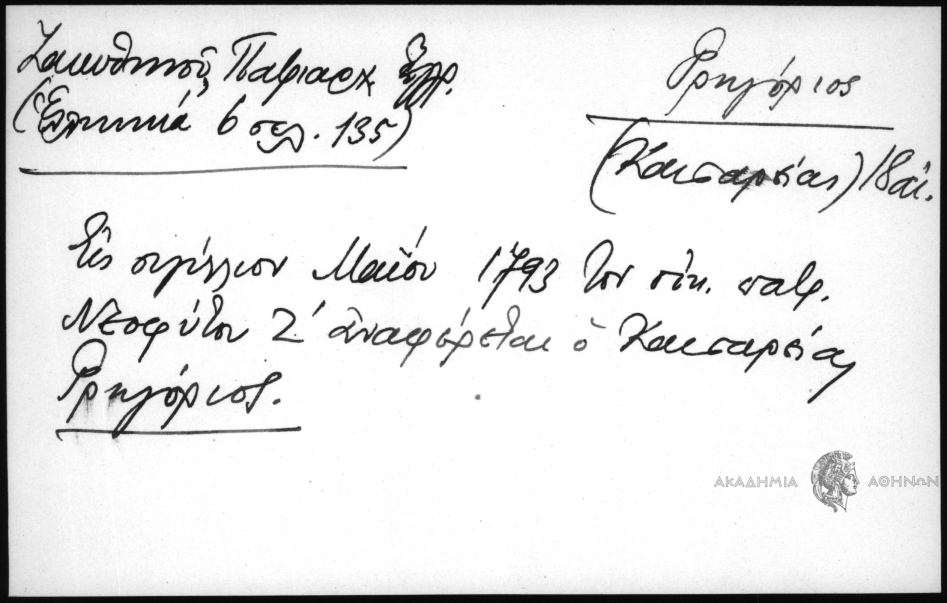 Ζακυθηνοῦ, Πατριαρχ. Ἔγγρ.
(Ἑλληνικά 6 σελ. 135)
Γρηγόριος
(Καισαρείας) 18 αἰ.
Εἰς σιγίλλιον Μαΐου 1793 τοῦ οἰκ. πατρ.
Νεοφύτου Ζ' ἀναφέρεται ὁ Καισαρείας
Γρηγόριος.
ΑΚΑΔΗΜΙΑ ΑΘΗΝΩΝ